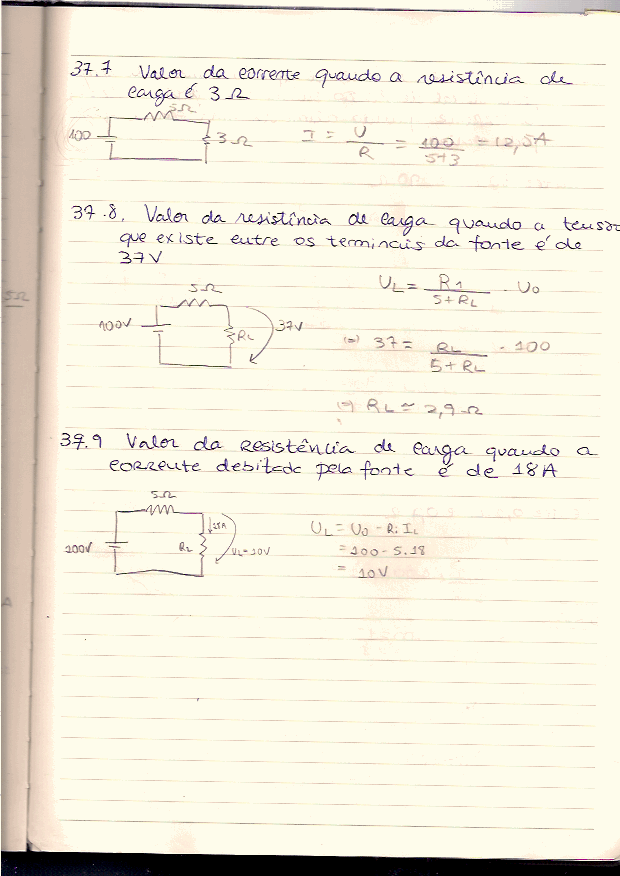 37.7 Valor da corrente quando a resistência de
carga é 3 Ω
5Ω
100
3 Ω
I = U/R = 100/5+3 = 12,5A
37.8. Valor da resistência de carga quando a tensão
que existe entre os terminais da fonte é de
37V
5Ω
5Ω
100V
RL
37V
UL = R1/5+RL · U0
(=) 37 = RL/5+RL · 100
(=) RL ≃ 2,9 Ω
37.9 Valor da Resistência de carga quando a
corrente debitada pela fonte é de 18A
5Ω
100V
RL
18A
UL=10V
UL = U0 - Ri IL
= 100 - 5.18
= 10V